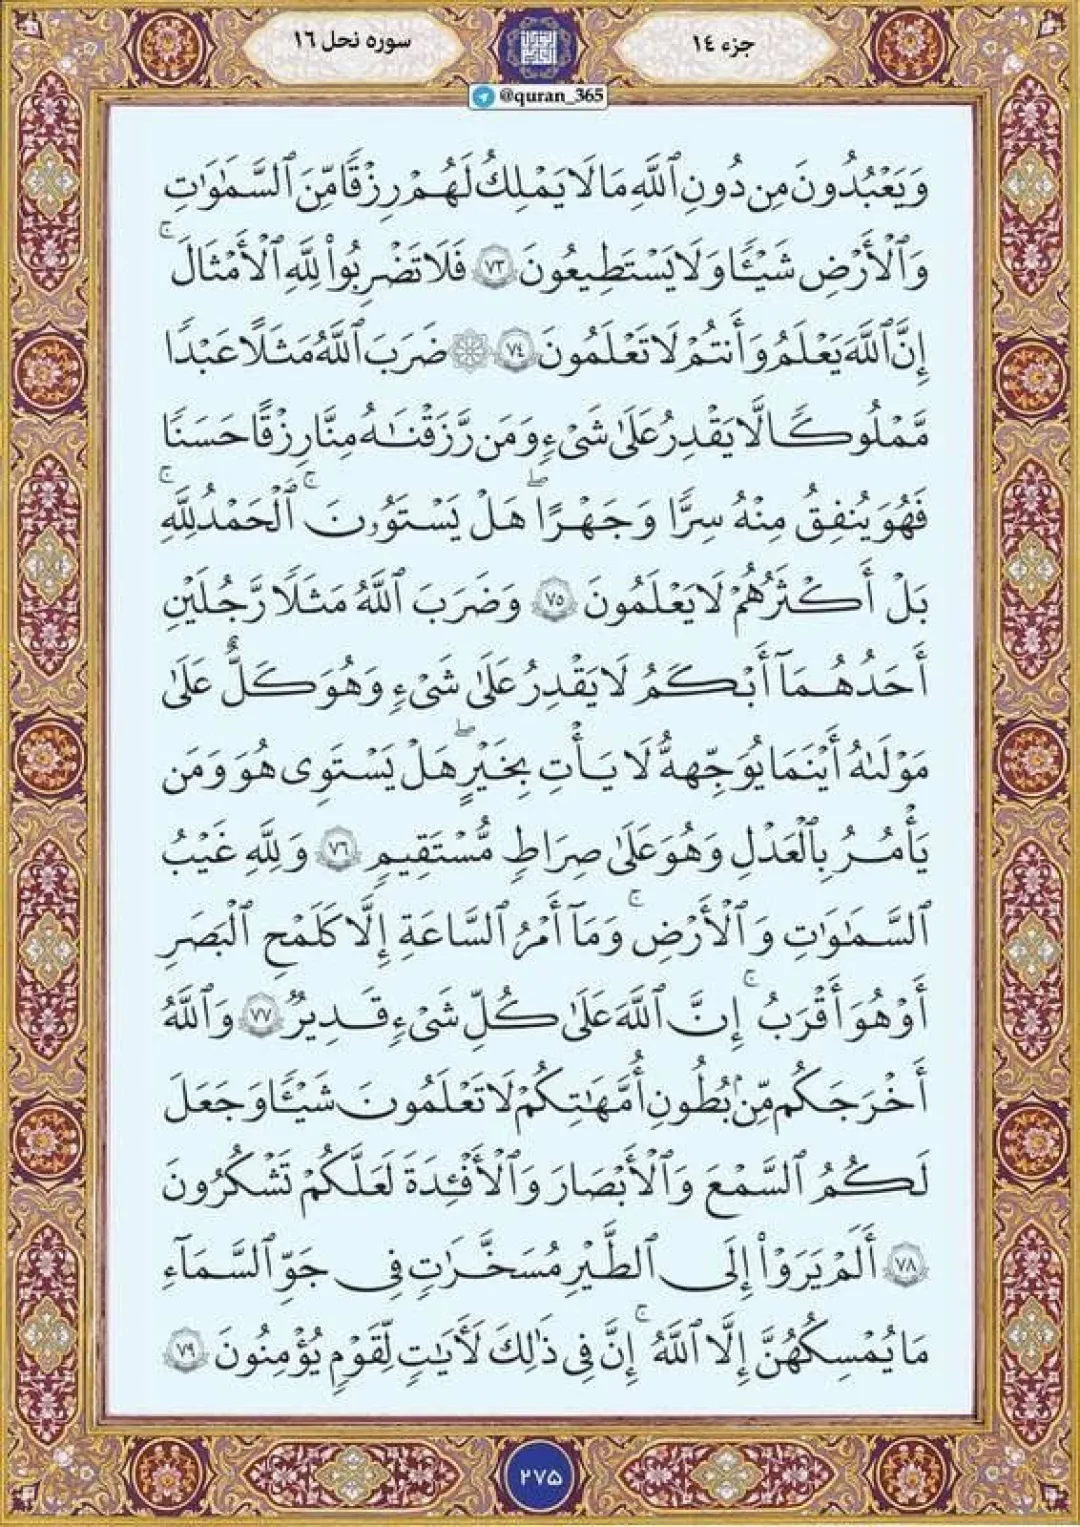 جزء ١٤
سوره نحل ١٦
@quran_365
وَيَعْبُدُونَ مِن دُونِ ٱللَّهِ مَا لَا يَمْلِكُ لَهُمْ رِزْقًا مِّنَ ٱلسَّمَٰوَٰتِ
وَٱلْأَرْضِ شَيْـًٔا وَلَا يَسْتَطِيعُونَ ٧٣ فَلَا تَضْرِبُوا۟ لِلَّهِ ٱلْأَمْثَالَ ۚ
إِنَّ ٱللَّهَ يَعْلَمُ وَأَنتُمْ لَا تَعْلَمُونَ ٧٤ ۞ ضَرَبَ ٱللَّهُ مَثَلًا عَبْدًا
مَّمْلُوكًا لَّا يَقْدِرُ عَلَىٰ شَىْءٍ وَمَن رَّزَقْنَٰهُ مِنَّا رِزْقًا حَسَنًا
فَهُوَ يُنفِقُ مِنْهُ سِرًّا وَجَهْرًا ۖ هَلْ يَسْتَوُۥنَ ۚ ٱلْحَمْدُ لِلَّهِ ۚ
بَلْ أَكْثَرُهُمْ لَا يَعْلَمُونَ ٧٥ وَضَرَبَ ٱللَّهُ مَثَلًا رَّجُلَيْنِ
أَحَدُهُمَآ أَبْكَمُ لَا يَقْدِرُ عَلَىٰ شَىْءٍ وَهُوَ كَلٌّ عَلَىٰ
مَوْلَىٰهُ أَيْنَمَا يُوَجِّههُّ لَا يَأْتِ بِخَيْرٍ ۖ هَلْ يَسْتَوِى هُوَ وَمَن
يَأْمُرُ بِٱلْعَدْلِ وَهُوَ عَلَىٰ صِرَٰطٍ مُّسْتَقِيمٍ ٧٦ وَلِلَّهِ غَيْبُ
ٱلسَّمَٰوَٰتِ وَٱلْأَرْضِ ۚ وَمَآ أَمْرُ ٱلسَّاعَةِ إِلَّا كَلَمْحِ ٱلْبَصَرِ
أَوْ هُوَ أَقْرَبُ ۚ إِنَّ ٱللَّهَ عَلَىٰ كُلِّ شَىْءٍ قَدِيرٌ ٧٧ وَٱللَّهُ
أَخْرَجَكُم مِّنۢ بُطُونِ أُمَّهَٰتِكُمْ لَا تَعْلَمُونَ شَيْـًٔا وَجَعَلَ
لَكُمُ ٱلسَّمْعَ وَٱلْأَبْصَٰرَ وَٱلْأَفْـِٔدَةَ لَعَلَّكُمْ تَشْكُرُونَ
٧٨ أَلَمْ يَرَوْا۟ إِلَى ٱلطَّيْرِ مُسَخَّرَٰتٍ فِى جَوِّ ٱلسَّمَآءِ
مَا يُمْسِكُهُنَّ إِلَّا ٱللَّهُ ۚ إِنَّ فِى ذَٰلِكَ لَـَٔايَٰتٍ لِّقَوْمٍ يُؤْمِنُونَ ٧٩
٢٧٥